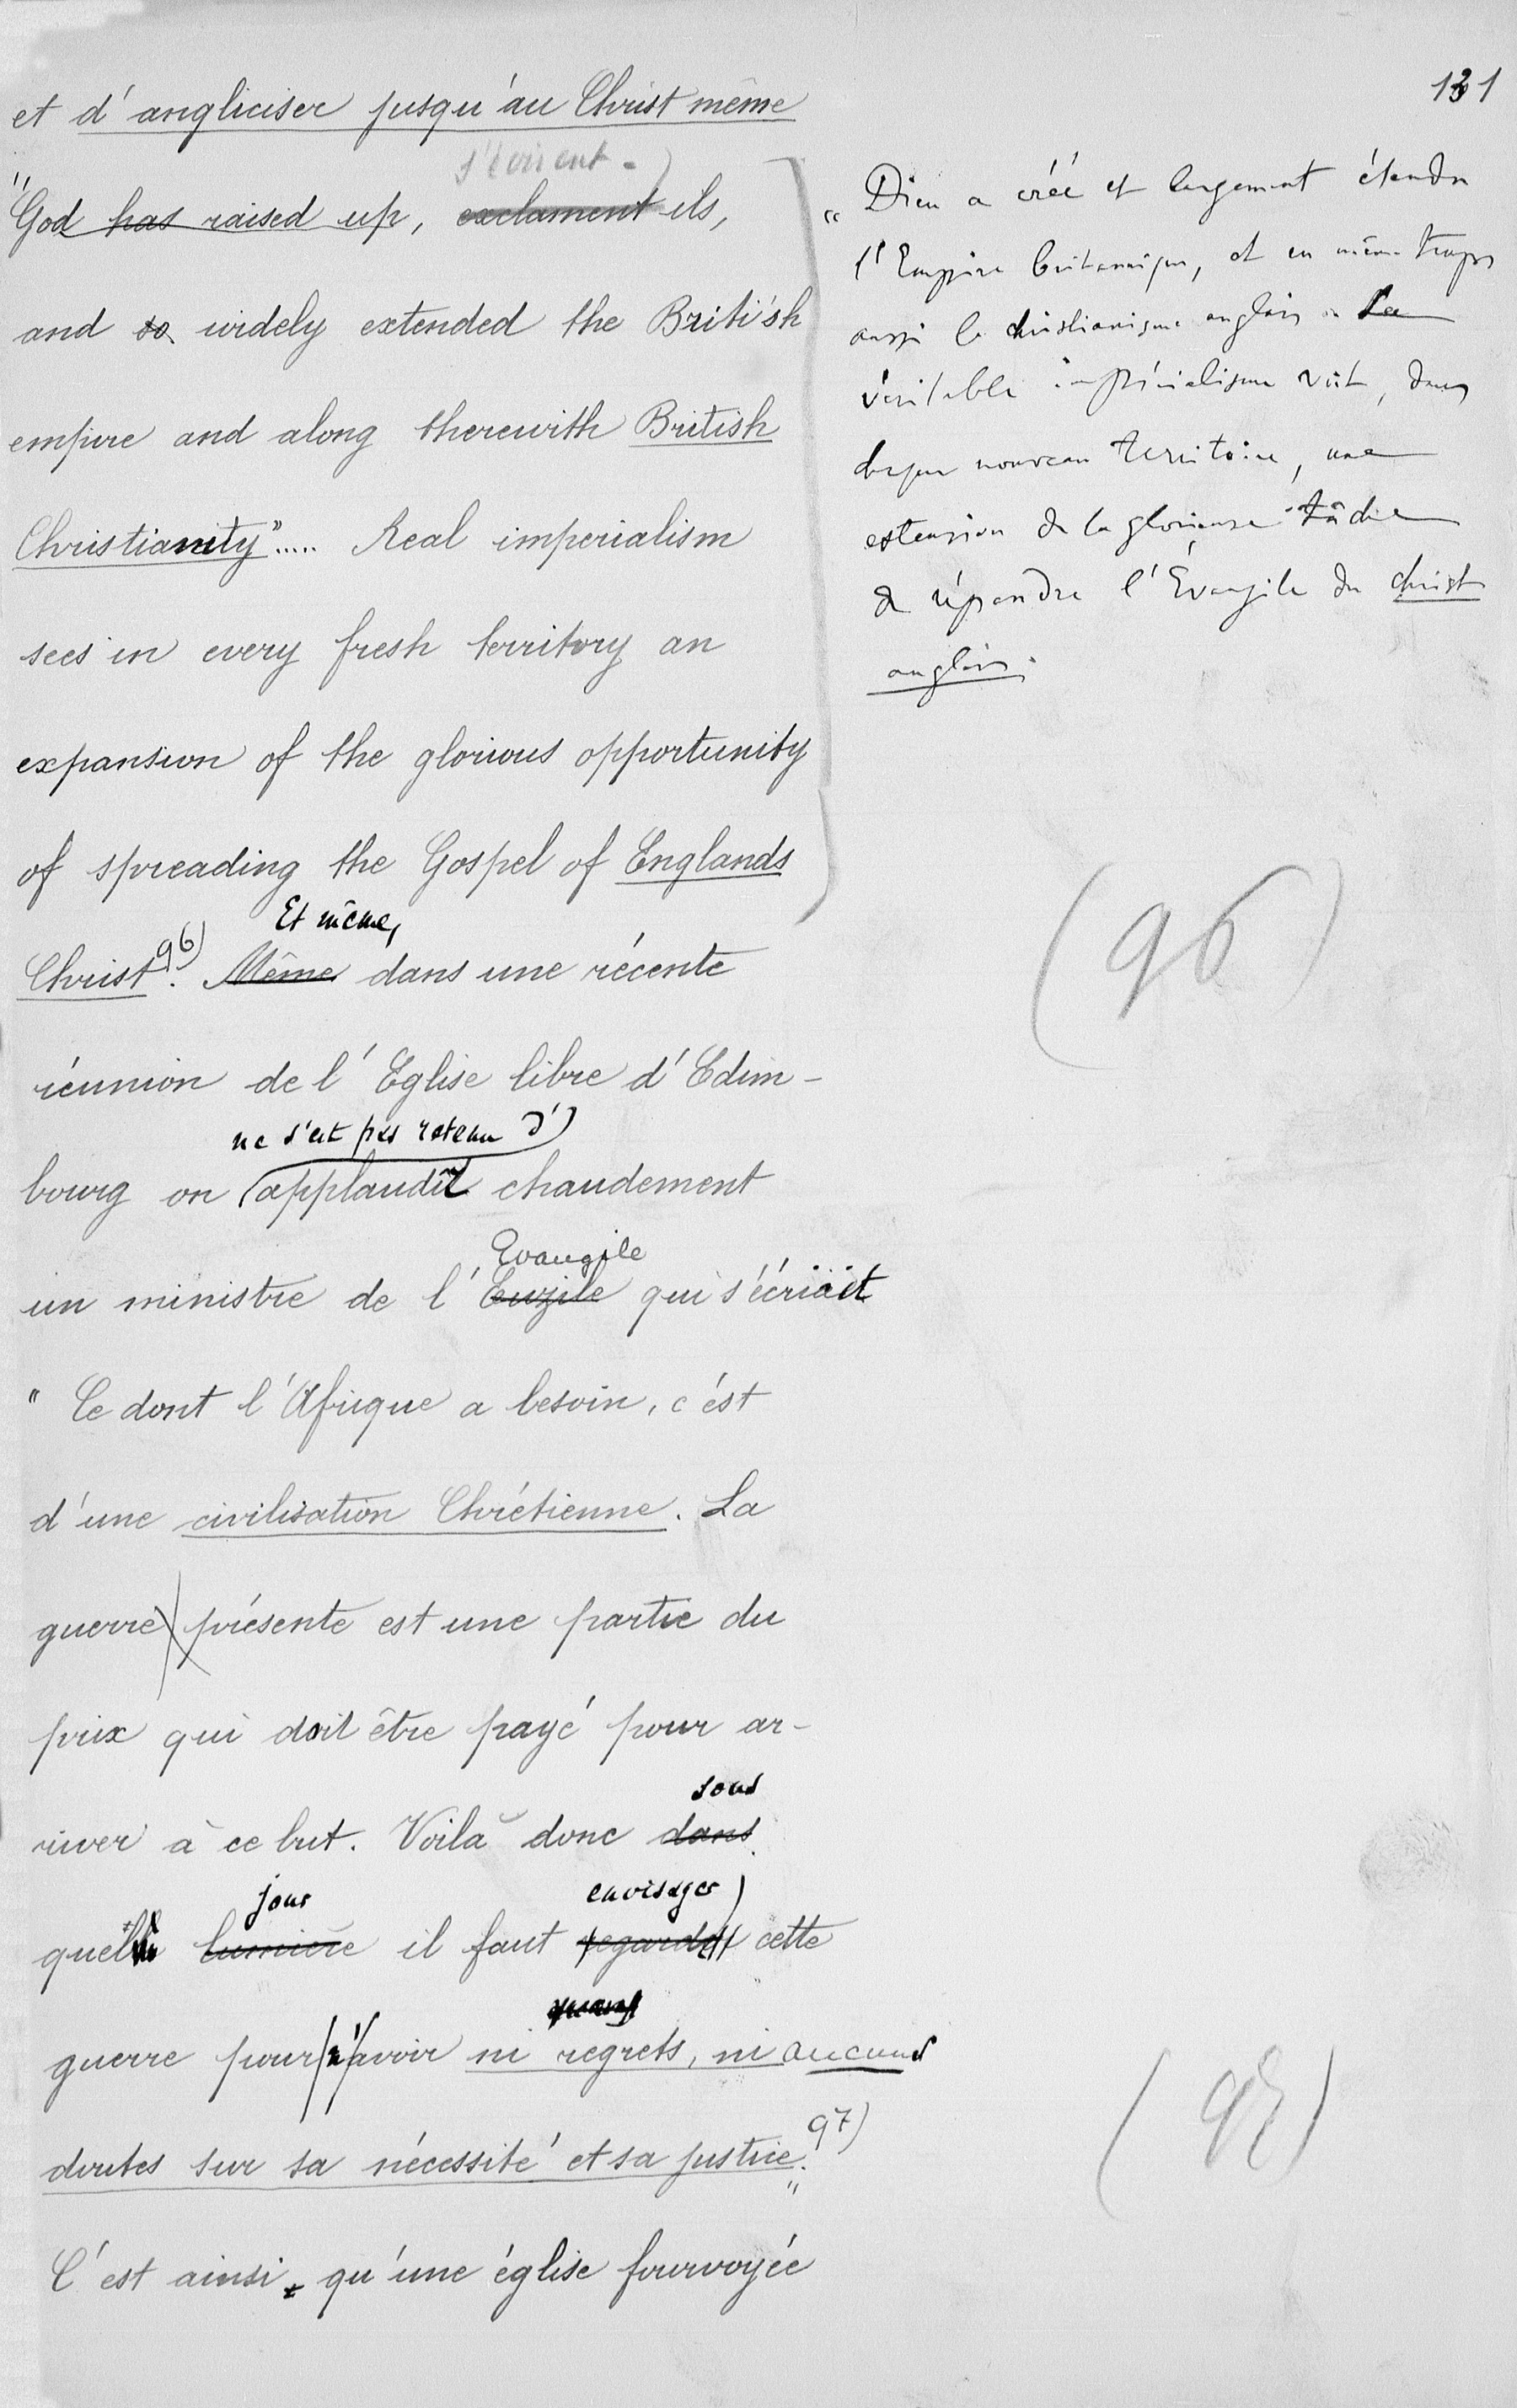 131
et d'angliciser jusqu'au Christ même
s'écrient -
"God has raised up, exclament ils,
and so widely extended the British
empire and along therewith British
Christianity"..... Real imperialism
sees in every fresh territory an
expansion of the glorious opportunity
of spreading the Gospel of Englands
Et même,
Christ 96). Même dans une récente
réunion de l'Eglise libre d'Edim-
ne s'est pas retenu d'
bourg on applaudit chaudement
Evangile
un ministre de l'Euzile qui s'écriait
" Ce dont l'Afrique a besoin, c'est
d'une civilisation Chrétienne. La
guerre présente est une partie du
prix qui doit être payé pour ar-
sous
river à ce but. Voilà donc dans
jour envisager
quelle lumière il faut regarder cette
guerre pour n'avoir ni regrets, ni aucuns
doutes sur sa nécessité et sa justice." 97)
C'est ainsi qu'une église fourvoyée
" Dieu a créé et largement étendu
l'Empire britannique, et en même temps
aussi le christianisme anglais " Le
véritable impérialisme voit, dans
chaque nouveau territoire, une
extension de la glorieuse tâche
de répandre l'Évangile du Christ
anglais.
(96)
(97)